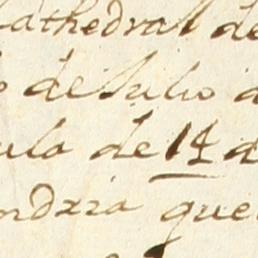 Cathedral de
de Julio
ula de 14 d
ndxia que